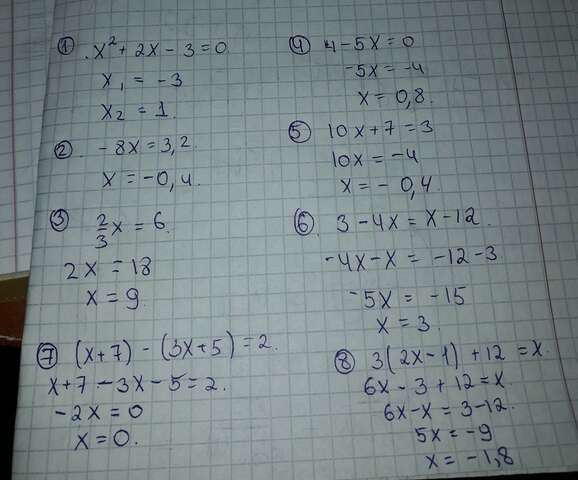 ① x² + 2x - 3 = 0
x₁ = -3
x₂ = 1.
② -8x = 3,2.
x = -0,4.
③ 2/3 x = 6.
2x = 18
x = 9.
④ 4 - 5x = 0
-5x = -4
x = 0,8.
⑤ 10x + 7 = 3
10x = -4
x = - 0,4.
⑥ 3 - 4x = x - 12.
-4x - x = -12 - 3
-5x = -15
x = 3.
⑦ (x+7) - (3x+5) = 2.
x + 7 - 3x - 5 = 2.
-2x = 0
x = 0.
⑧ 3(2x-1) + 12 = x.
6x - 3 + 12 = x.
6x - x = 3 - 12.
5x = -9
x = -1,8